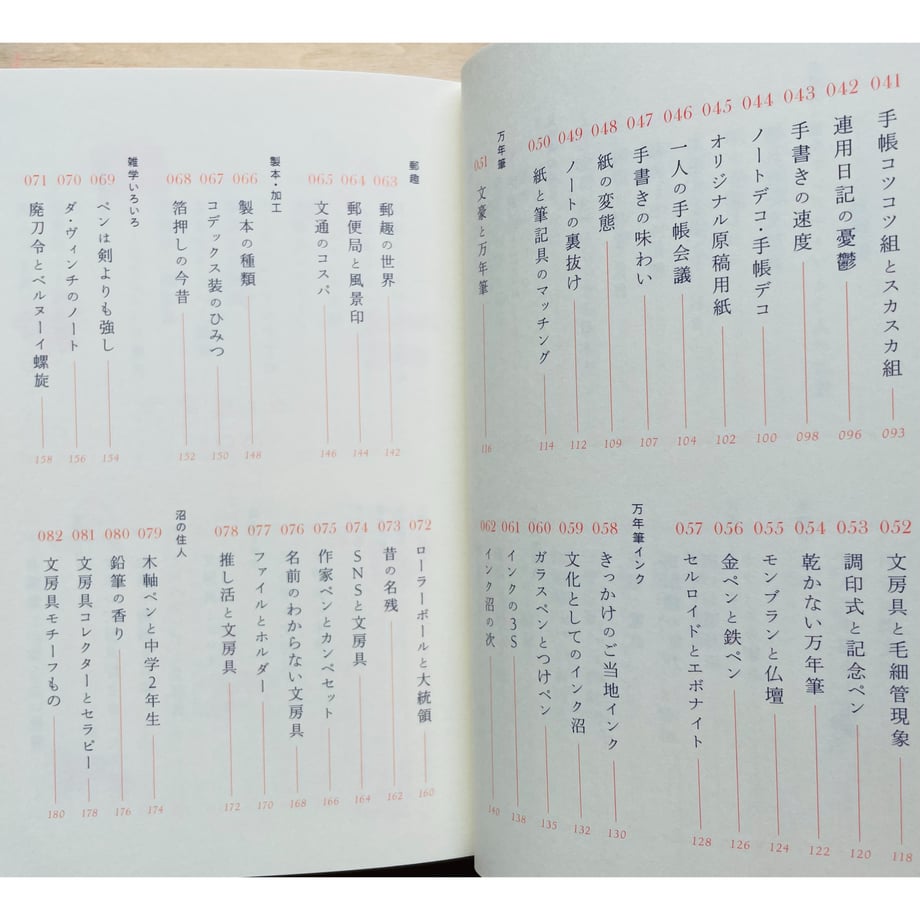 041 手帳コツコツ組とスカスカ組 093
042 連用日記の憂鬱 096
043 手書きの速度 098
044 ノートデコ・手帳デコ 100
045 オリジナル原稿用紙 102
046 一人の手帳会議 104
047 手書きの味わい 107
048 紙の変態 109
049 ノートの裏抜け 112
050 紙と筆記具のマッチング 114
万年筆
051 文豪と万年筆 116
052 文房具と毛細管現象 118
053 調印式と記念ペン 120
054 乾かない万年筆 122
055 モンブランと仏壇 124
056 金ペンと鉄ペン 126
057 セルロイドとエボナイト 128
万年筆インク
058 きっかけのご当地インク 130
059 文化としてのインク沼 132
060 ガラスペンとつけペン 135
061 インクの3S 138
062 インク沼の次 140
郵趣
063 郵趣の世界 142
064 郵便局と風景印 144
065 文通のコスパ 146
製本・加工
066 製本の種類 148
067 コデックス装のひみつ 150
068 箔押しの今昔 152
雑学いろいろ
069 ペンは剣よりも強し 154
070 ダ・ヴィンチのノート 156
071 廃刀令とベルヌーイ螺旋 158
072 ローラーボールと大統領 160
073 昔の名残 162
074 SNSと文房具 164
075 作家ペンとカンペセット 166
076 名前のわからない文房具 168
077 ファイルとホルダー 170
078 推し活と文房具 172
沼の住人
079 木軸ペンと中学2年生 174
080 鉛筆の香り 176
081 文房具コレクターとセラピー 178
082 文房具モチーフもの 180